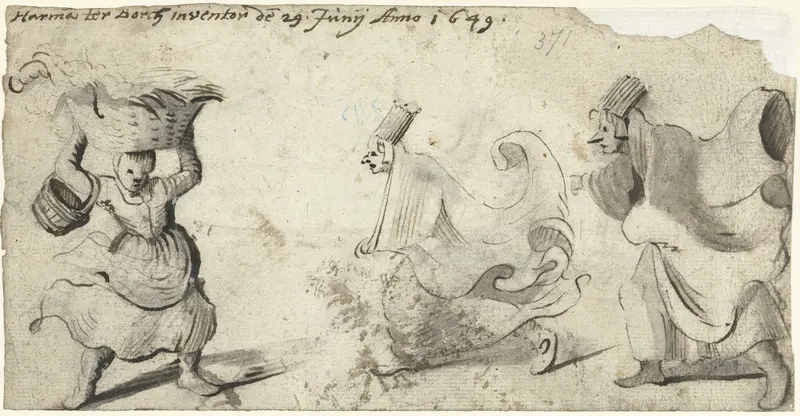 Harmanus ter Borch inventor den 29. Junij Anno 1649.
371